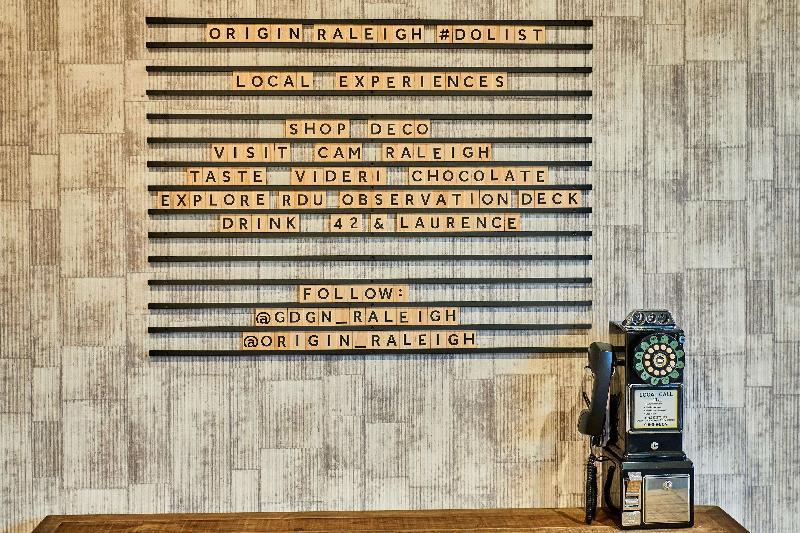 ORIGIN RALEIGH #DOLIST
LOCAL EXPERIENCES
SHOP DECO
VISIT CAM RALEIGH
TASTE VIDERI CHOCOLATE
EXPLORE RDU OBSERVATION DECK
DRINK 42 & LAURENCE
FOLLOW:
@GDGN_RALEIGH
@ORIGIN_RALEIGH
LOCAL CALL